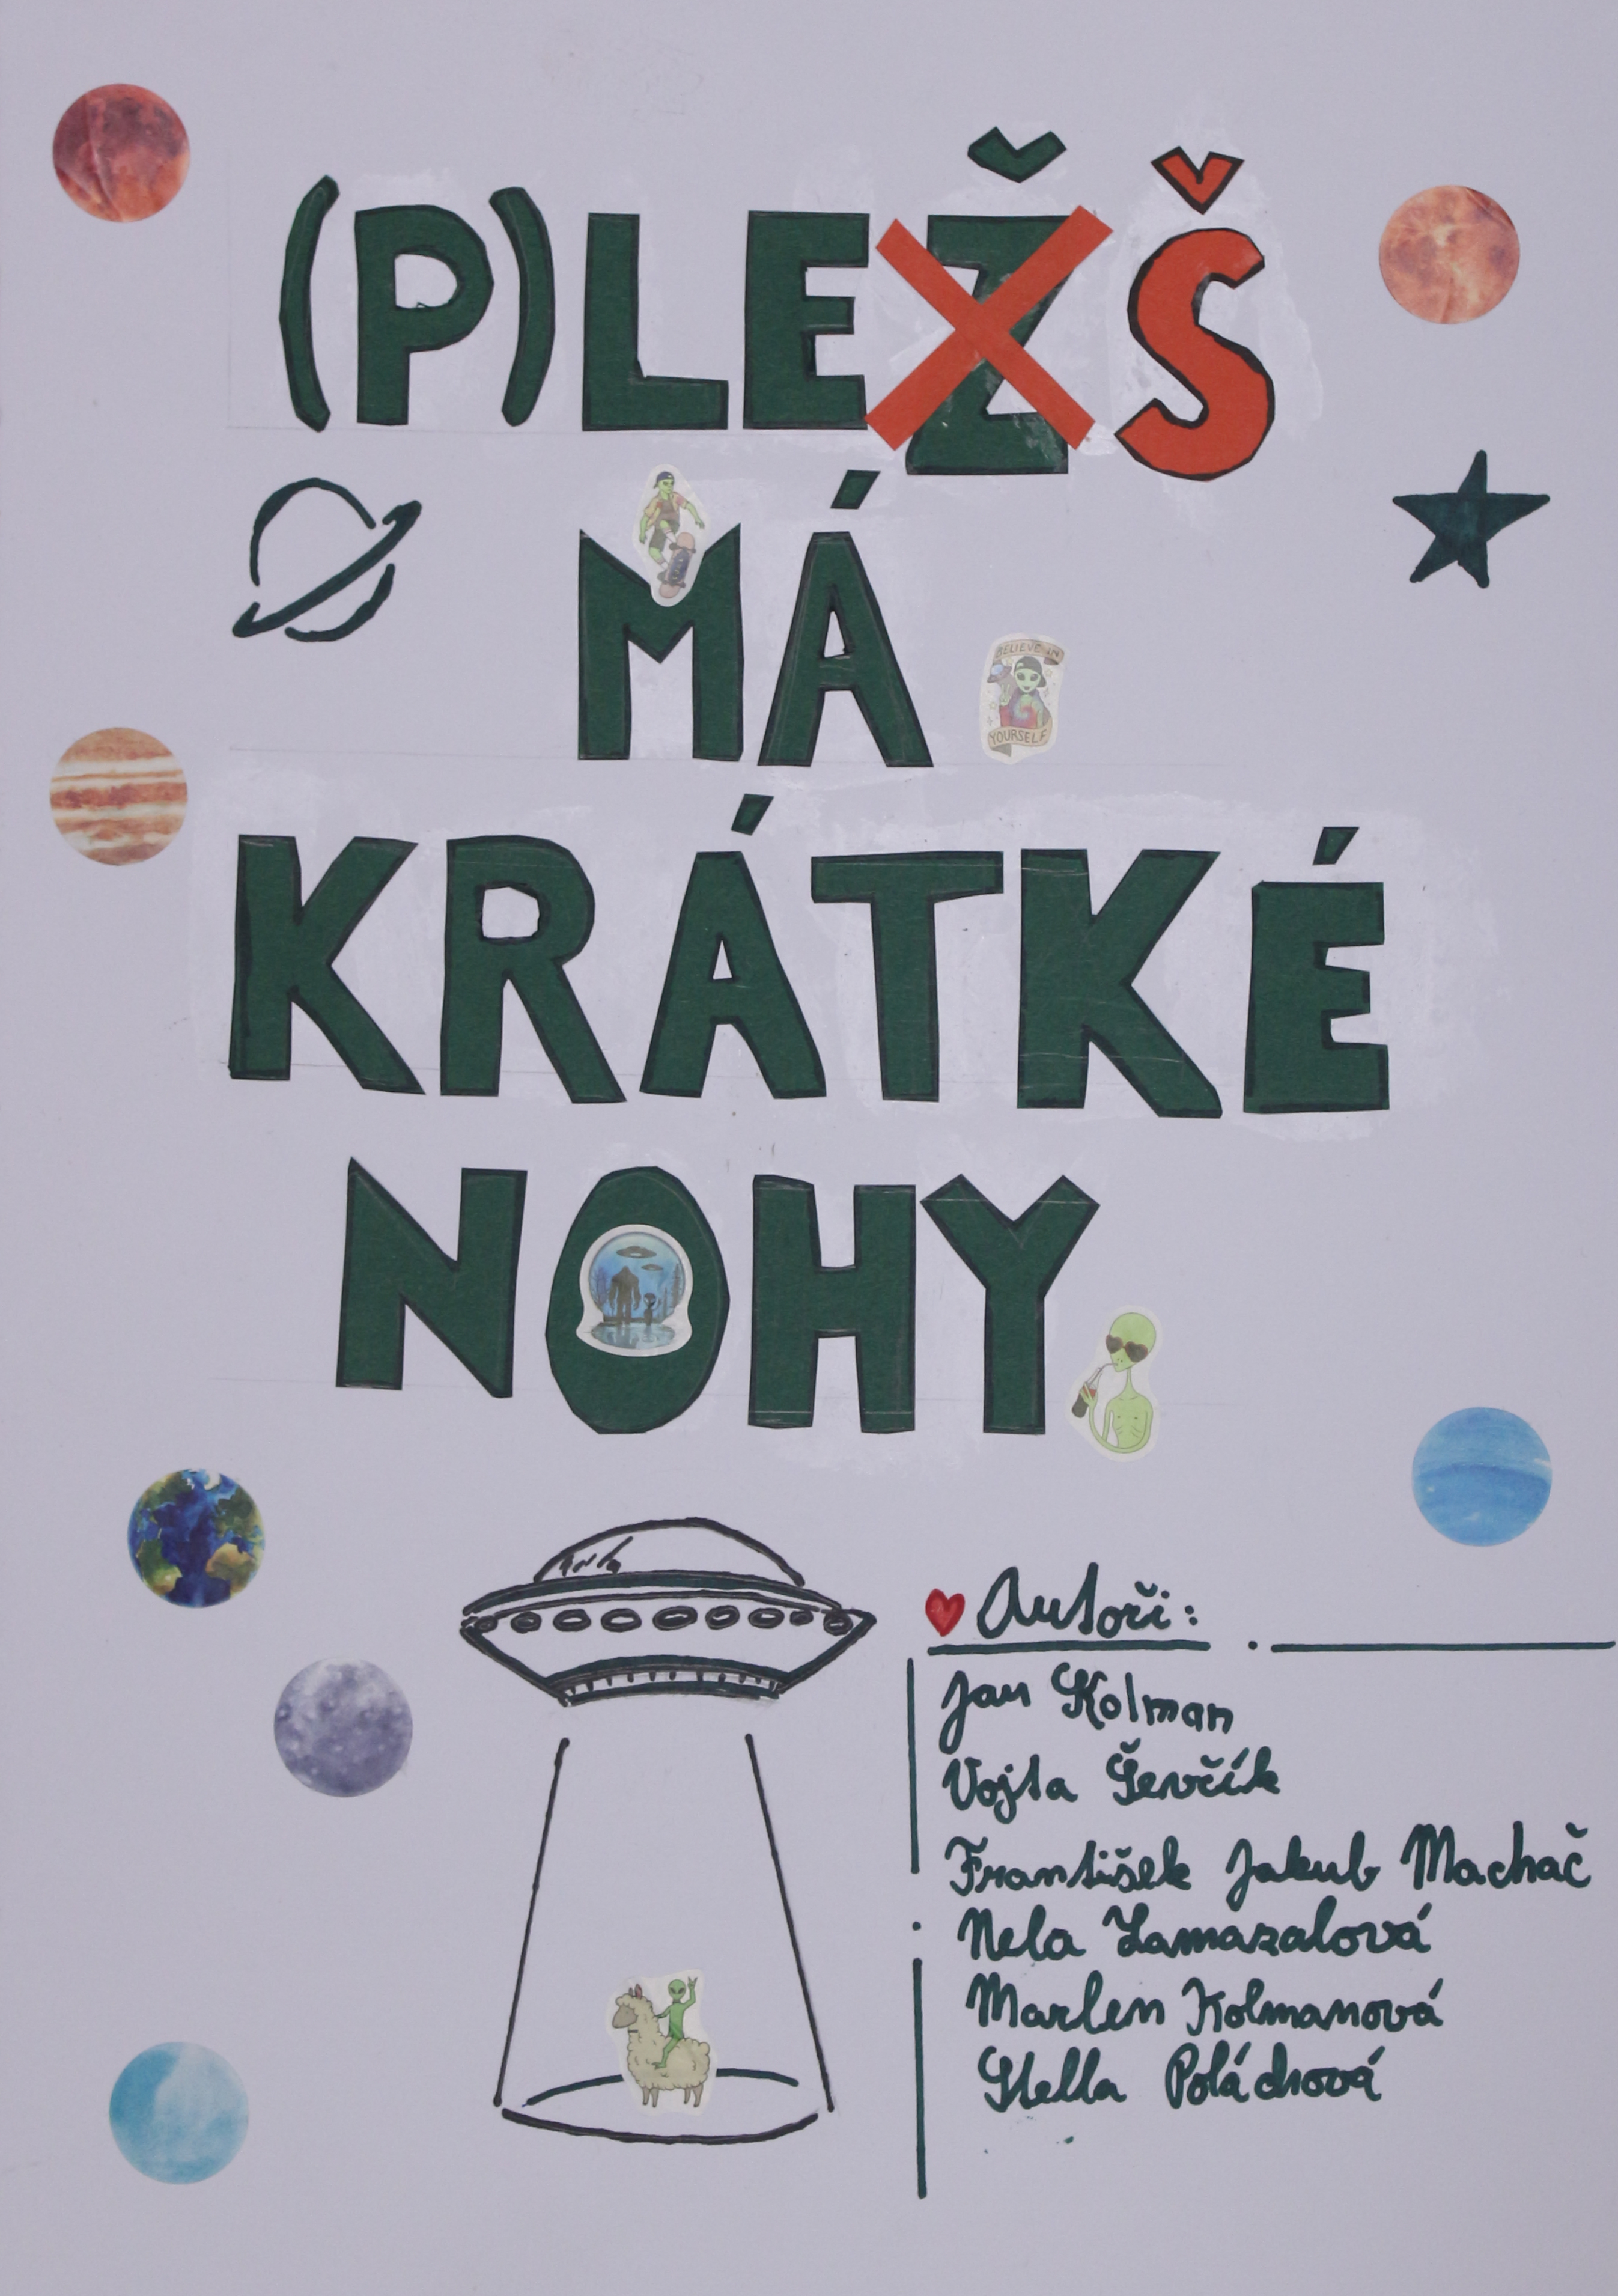 (P)LEŽŠ
MÁ
BELIEVE IN
YOURSELF
KRÁTKÉ
NOHY
Autoři:
Jan Kolman
Vojta Ševčík
František Jakub Machač
Nela Zamazalová
Marlen Kolmanová
Stella Poláchová